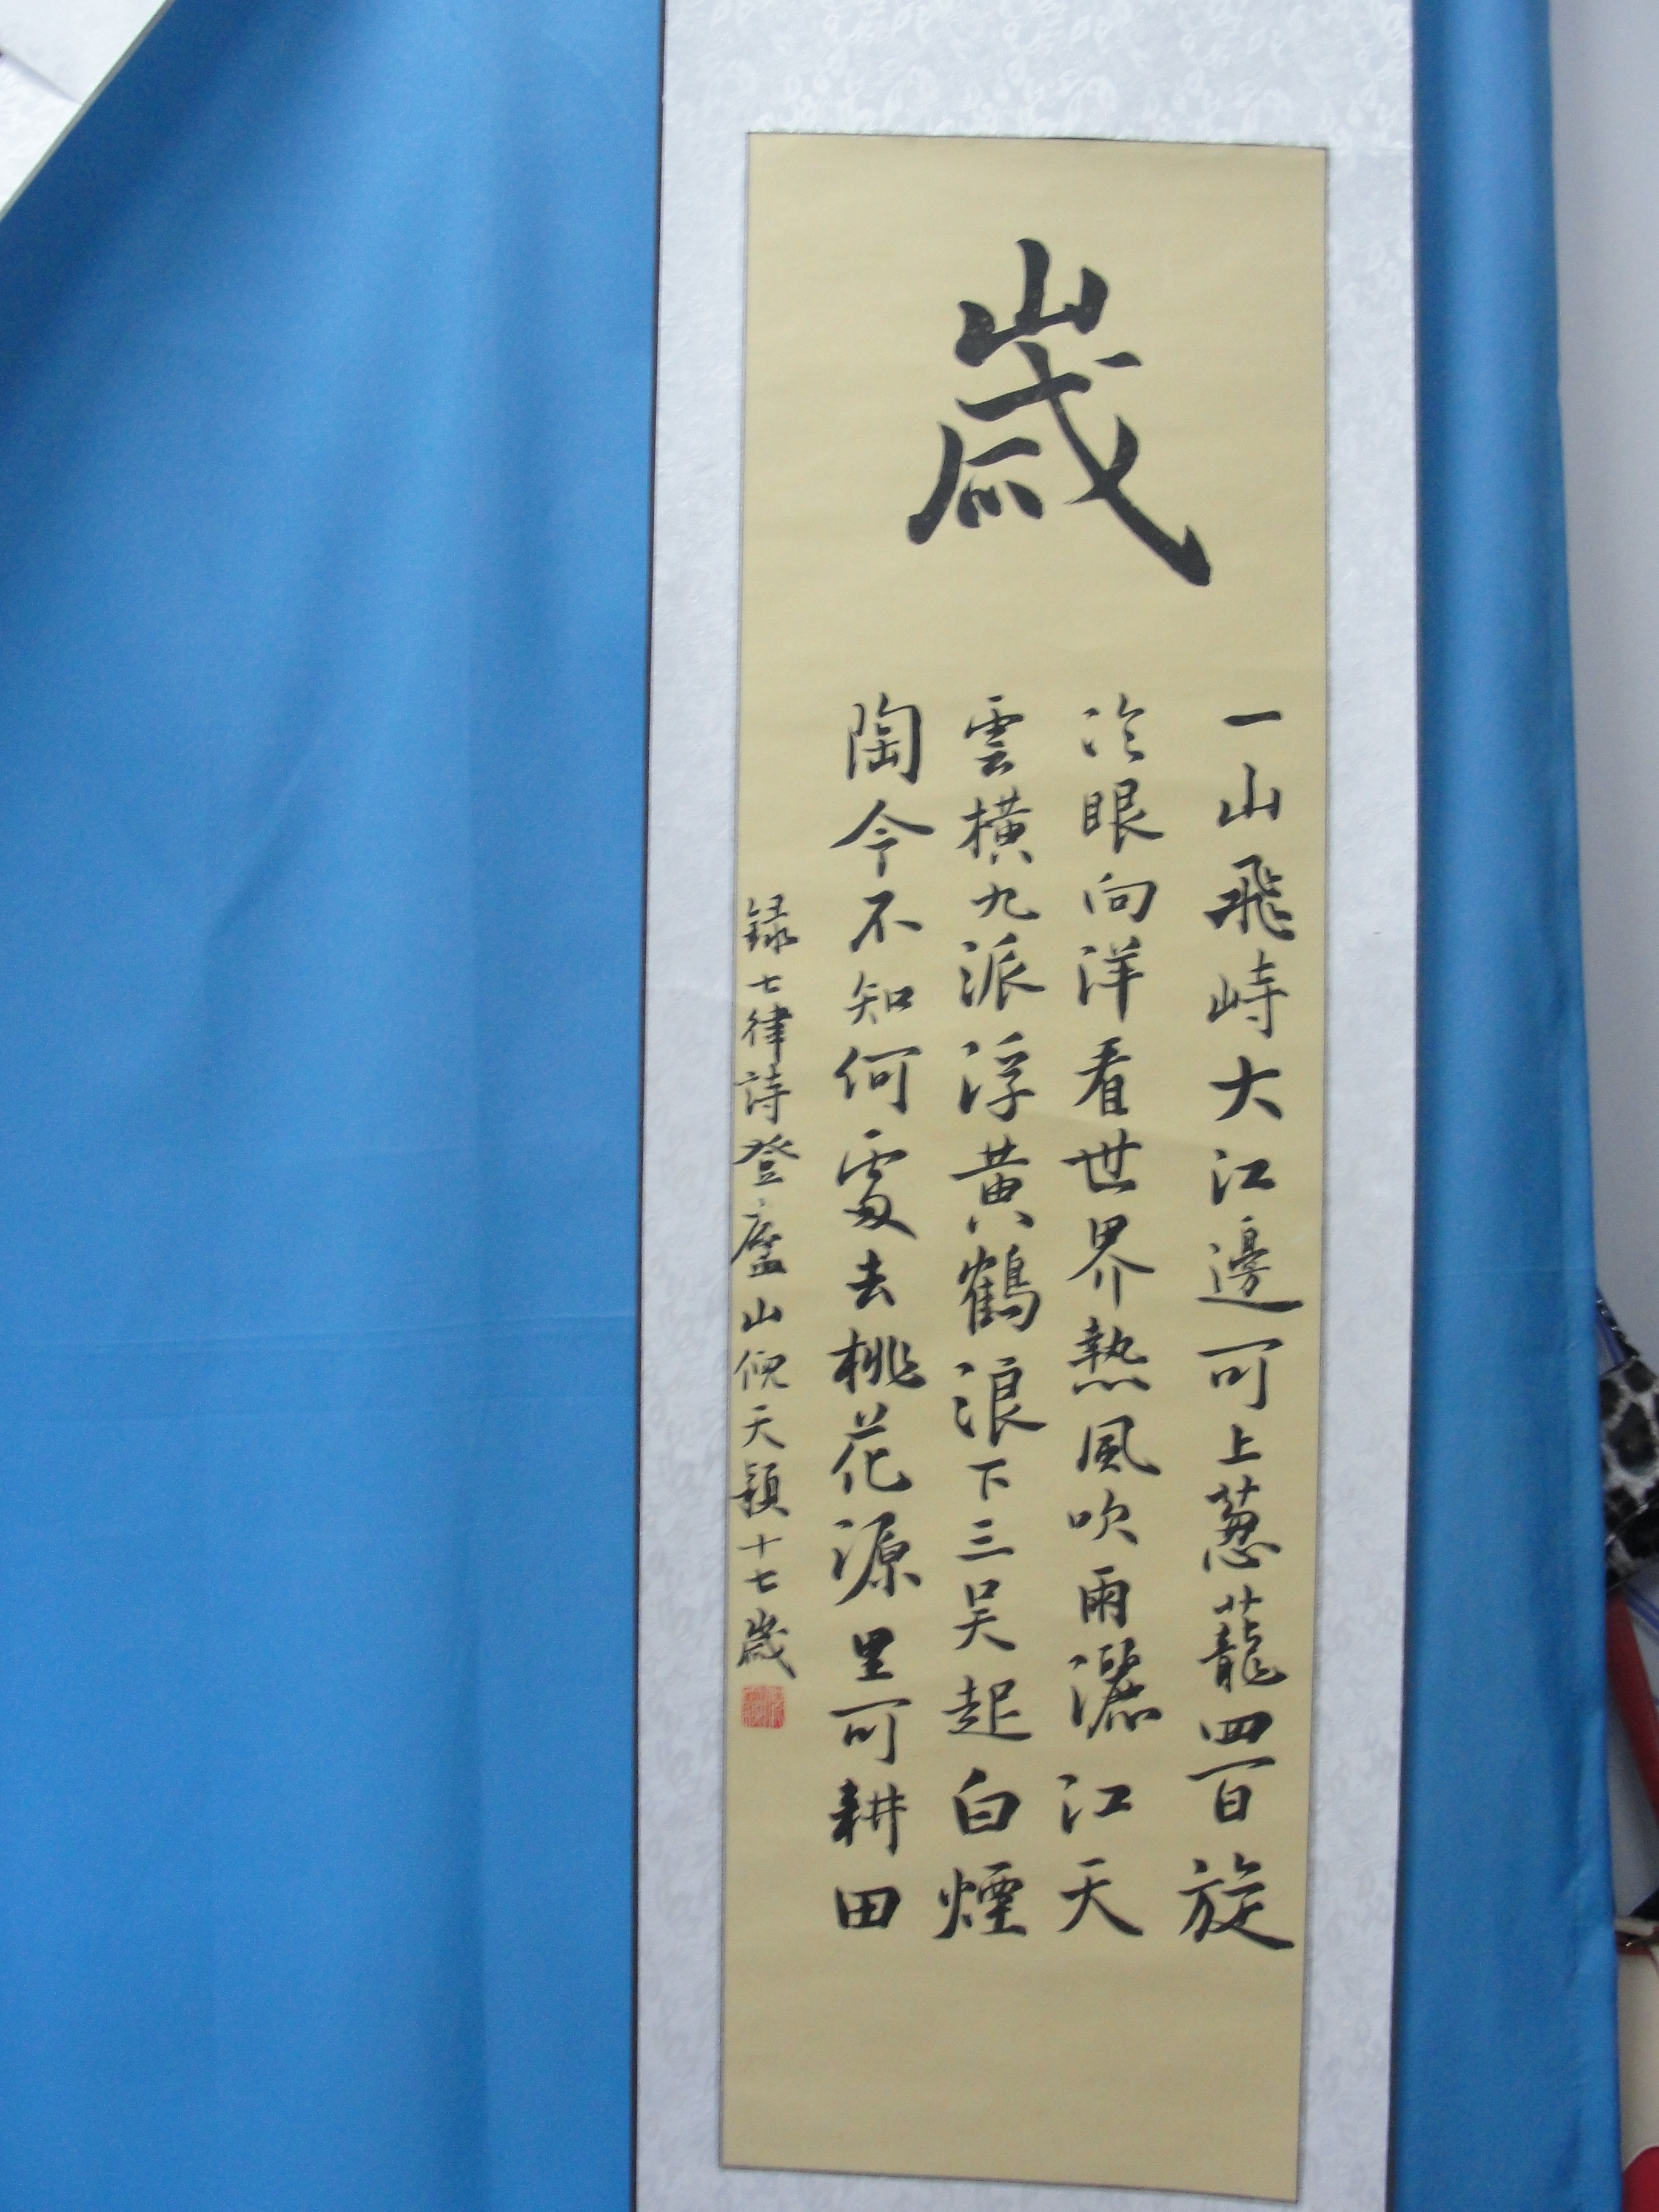 歲
一山飛峙大江邊可上蔥蘢四百旋
冷眼向洋看世界熱風吹雨灑江天
雲橫九派浮黃鶴浪下三吳起白煙
陶令不知何處去桃花源里可耕田
錄七律詩登廬山倪天穎十七歲